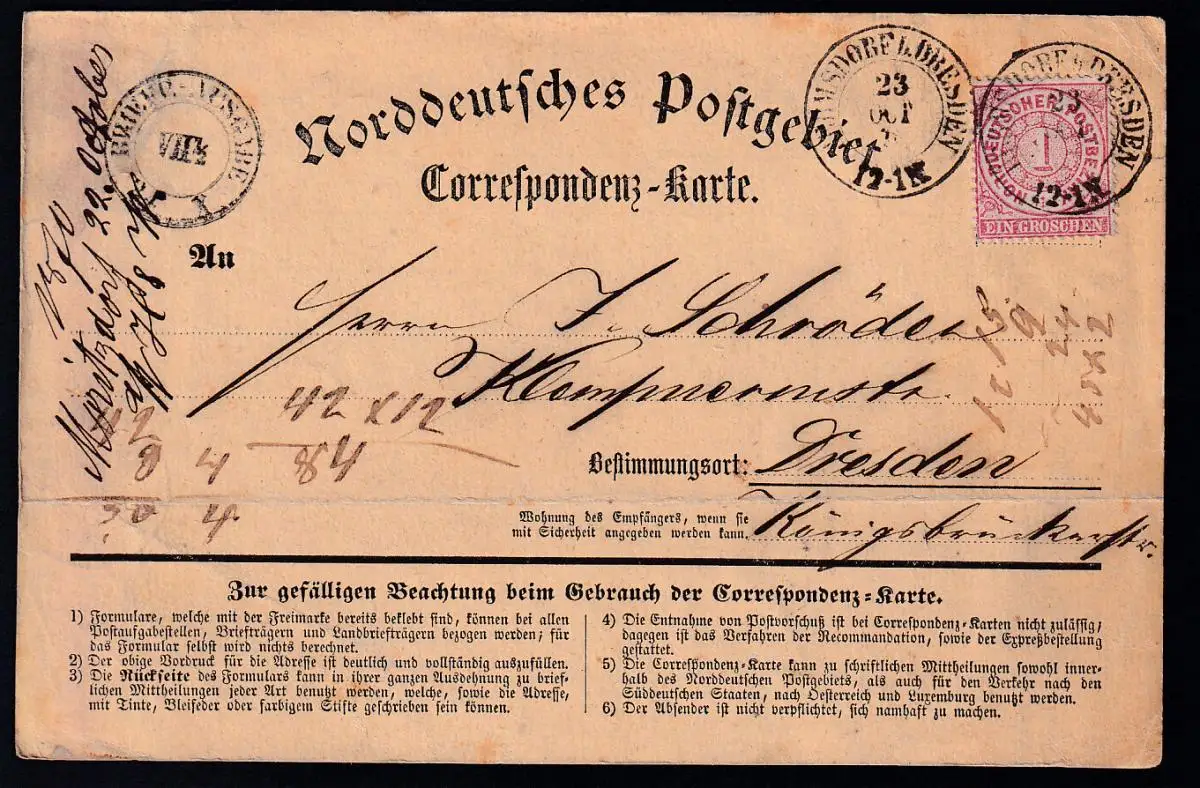 Norddeutsches Postgebiet
Correspondenz-Karte.
BRIEFTR.-AUSGABE
VIII½
I
LDRESDEN
23
OCT
12-1N
DRESDEN
23
12-1N
NORDDEUTSCHER POSTBEZIRK
1
EIN GROSCHEN
Moritzdorf 22. October
An
Herrn J. Schröder
Klempnermstr.
Bestimmungsort: Dresden
Wohnung des Empfängers, wenn sie
mit Sicherheit angegeben werden kann. Königsbrückerstr.
42 x 12
84
8 4
4
9
24
Zur gefälligen Beachtung beim Gebrauch der Correspondenz-Karte.
1) Formulare, welche mit der Freimarke bereits beklebt sind, können bei allen
Postaufgabestellen, Briefträgern und Landbriefträgern bezogen werden; für
das Formular selbst wird nichts berechnet.
2) Der obige Vordruck für die Adresse ist deutlich und vollständig auszufüllen.
3) Die Rückseite des Formulars kann in ihrer ganzen Ausdehnung zu brief-
lichen Mittheilungen jeder Art benutzt werden, welche, sowie die Adresse,
mit Tinte, Bleifeder oder farbigem Stifte geschrieben sein können.
4) Die Entnahme von Postvorschuß ist bei Correspondenz-Karten nicht zulässig,
dagegen ist das Verfahren der Recommandation, sowie der Expreßbestellung
gestattet.
5) Die Correspondenz-Karte kann zu schriftlichen Mittheilungen sowohl inner-
halb des Norddeutschen Postgebiets, als auch für den Verkehr nach den
Süddeutschen Staaten, nach Oesterreich und Luxemburg benutzt werden.
6) Der Absender ist nicht verpflichtet, sich namhaft zu machen.